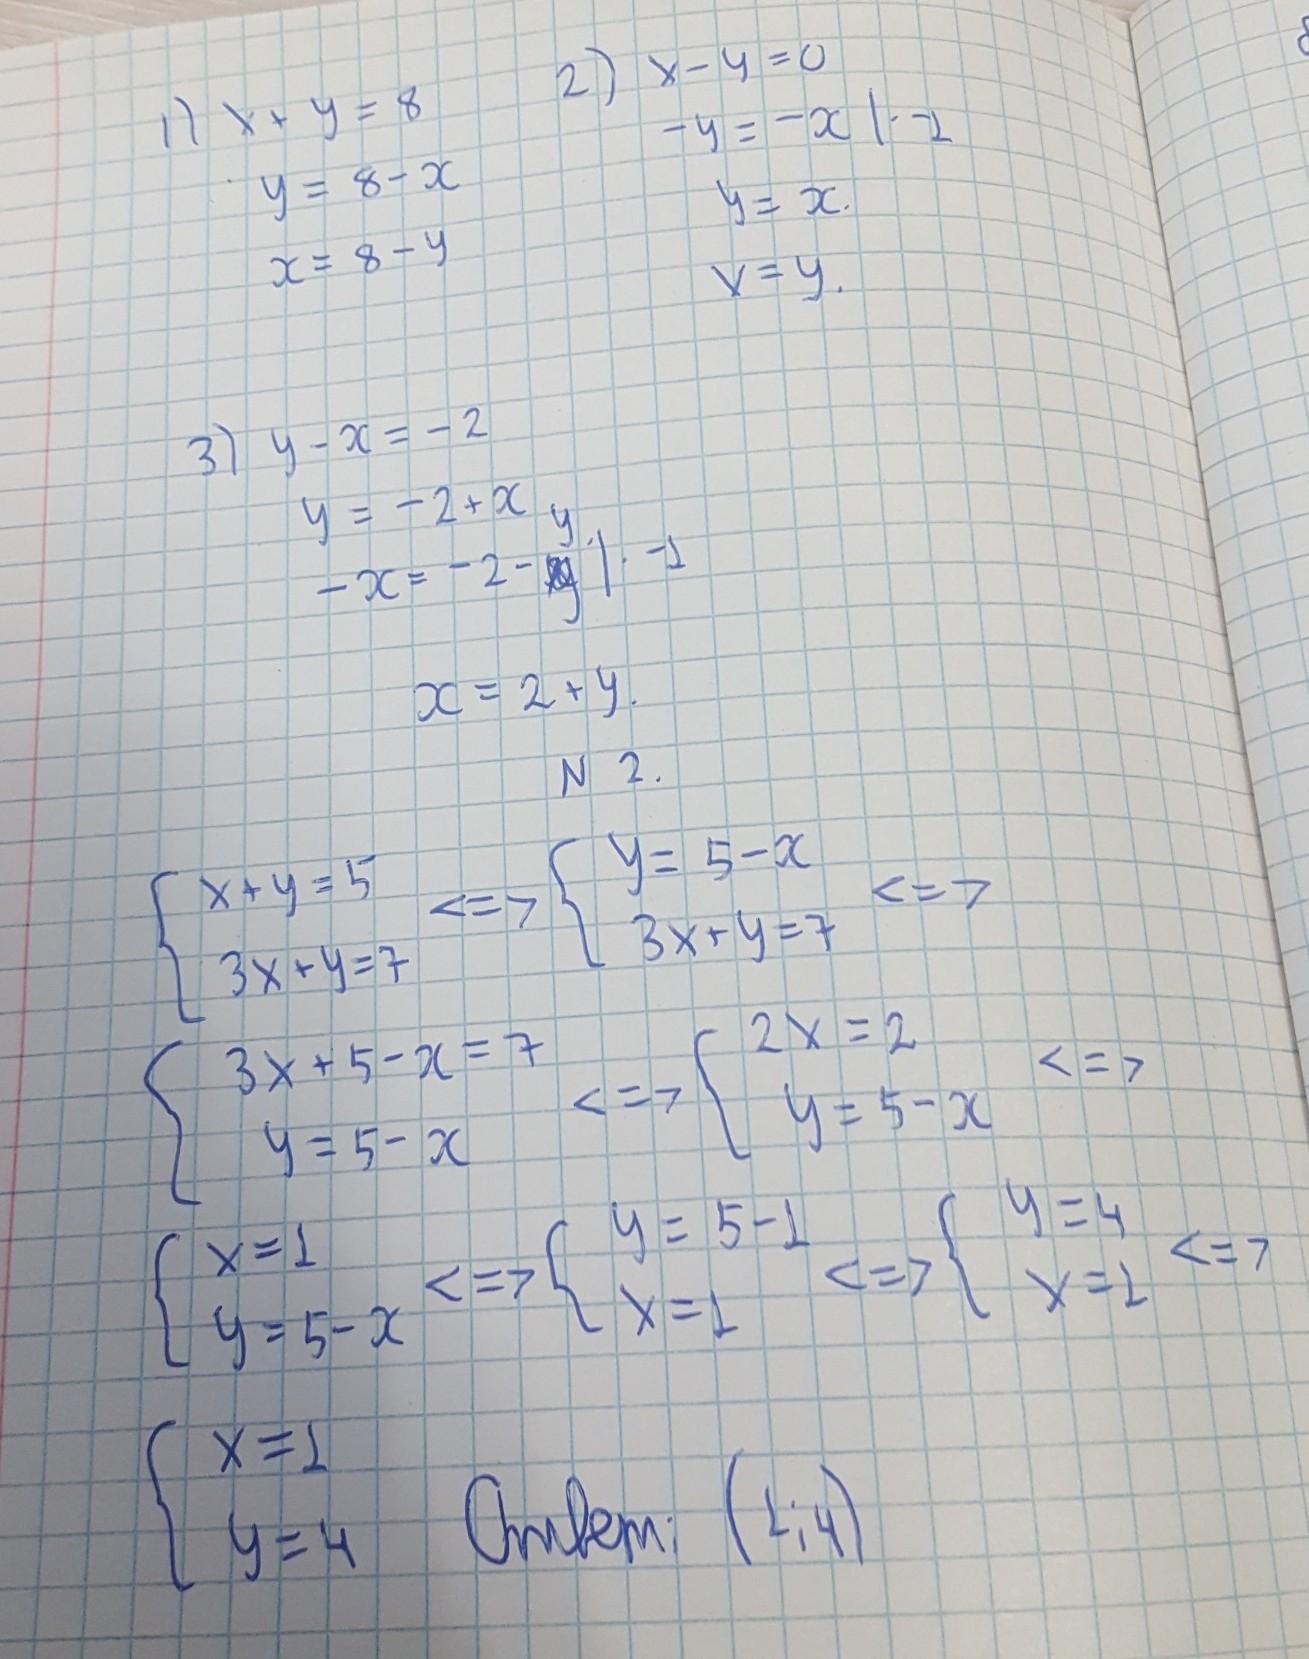 1) x + y = 8
y = 8 - x
x = 8 - y
2) x - y = 0
-y = -x | · -1
y = x.
x = y.
3) y - x = -2
y = -2 + x
-x = -2 - y | · -1
x = 2 + y.
N 2.
{ x + y = 5 <=> { y = 5 - x <=>
3x + y = 7 3x + y = 7
{ 3x + 5 - x = 7 <=> { 2x = 2 <=>
y = 5 - x y = 5 - x
{ x = 1 <=> { y = 5 - 1 <=> { y = 4 <=>
y = 5 - x x = 1 x = 1
{ x = 1
y = 4 Ответ: (1; 4)